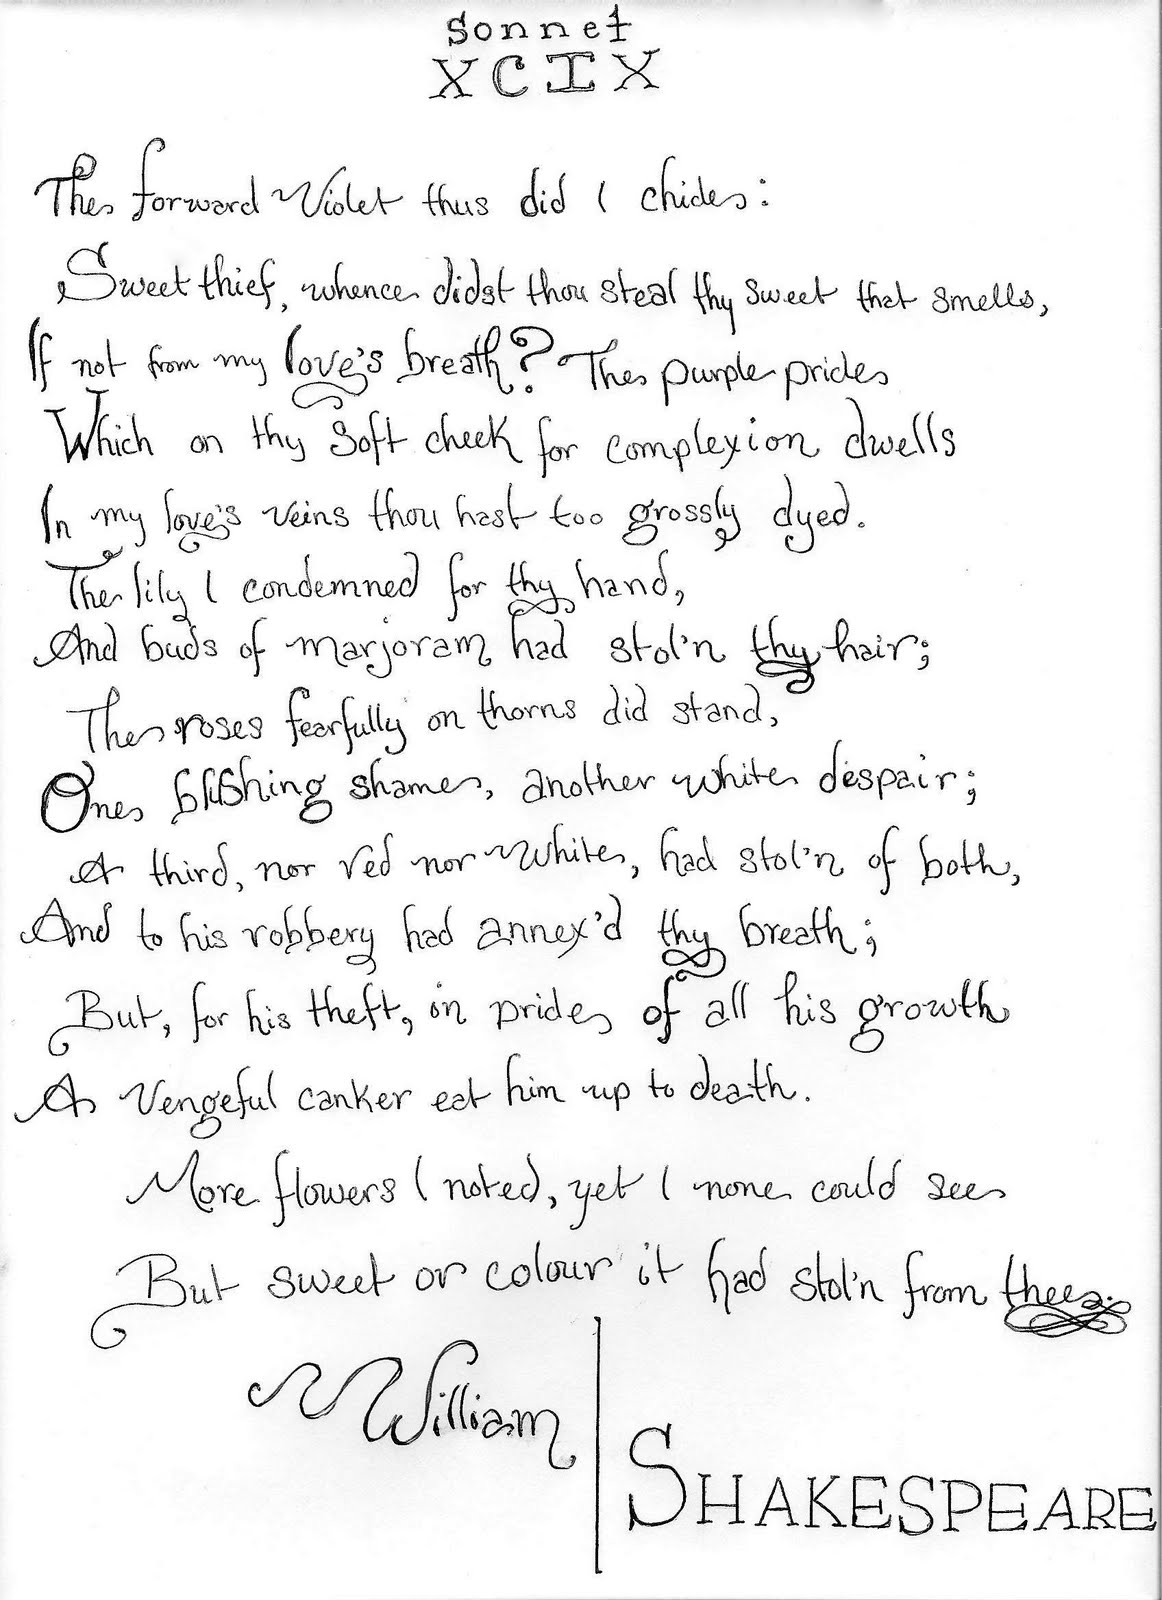 Sonnet
XCIX
The forward Violet thus did I chide:
Sweet thief, whence didst thou steal thy sweet that smells,
If not from my love's breath? The purple pride
Which on thy soft cheek for complexion dwells
In my love's veins thou hast too grossly dyed.
The lily I condemned for thy hand,
And buds of marjoram had stol'n thy hair;
The roses fearfully on thorns did stand,
One blushing shame, another white despair;
A third, nor red nor white, had stol'n of both,
And to his robbery had annex'd thy breath;
But, for his theft, in pride of all his growth
A vengeful canker eat him up to death.
More flowers I noted, yet I none could see
But sweet or colour it had stol'n from thee.
William
SHAKESPEARE